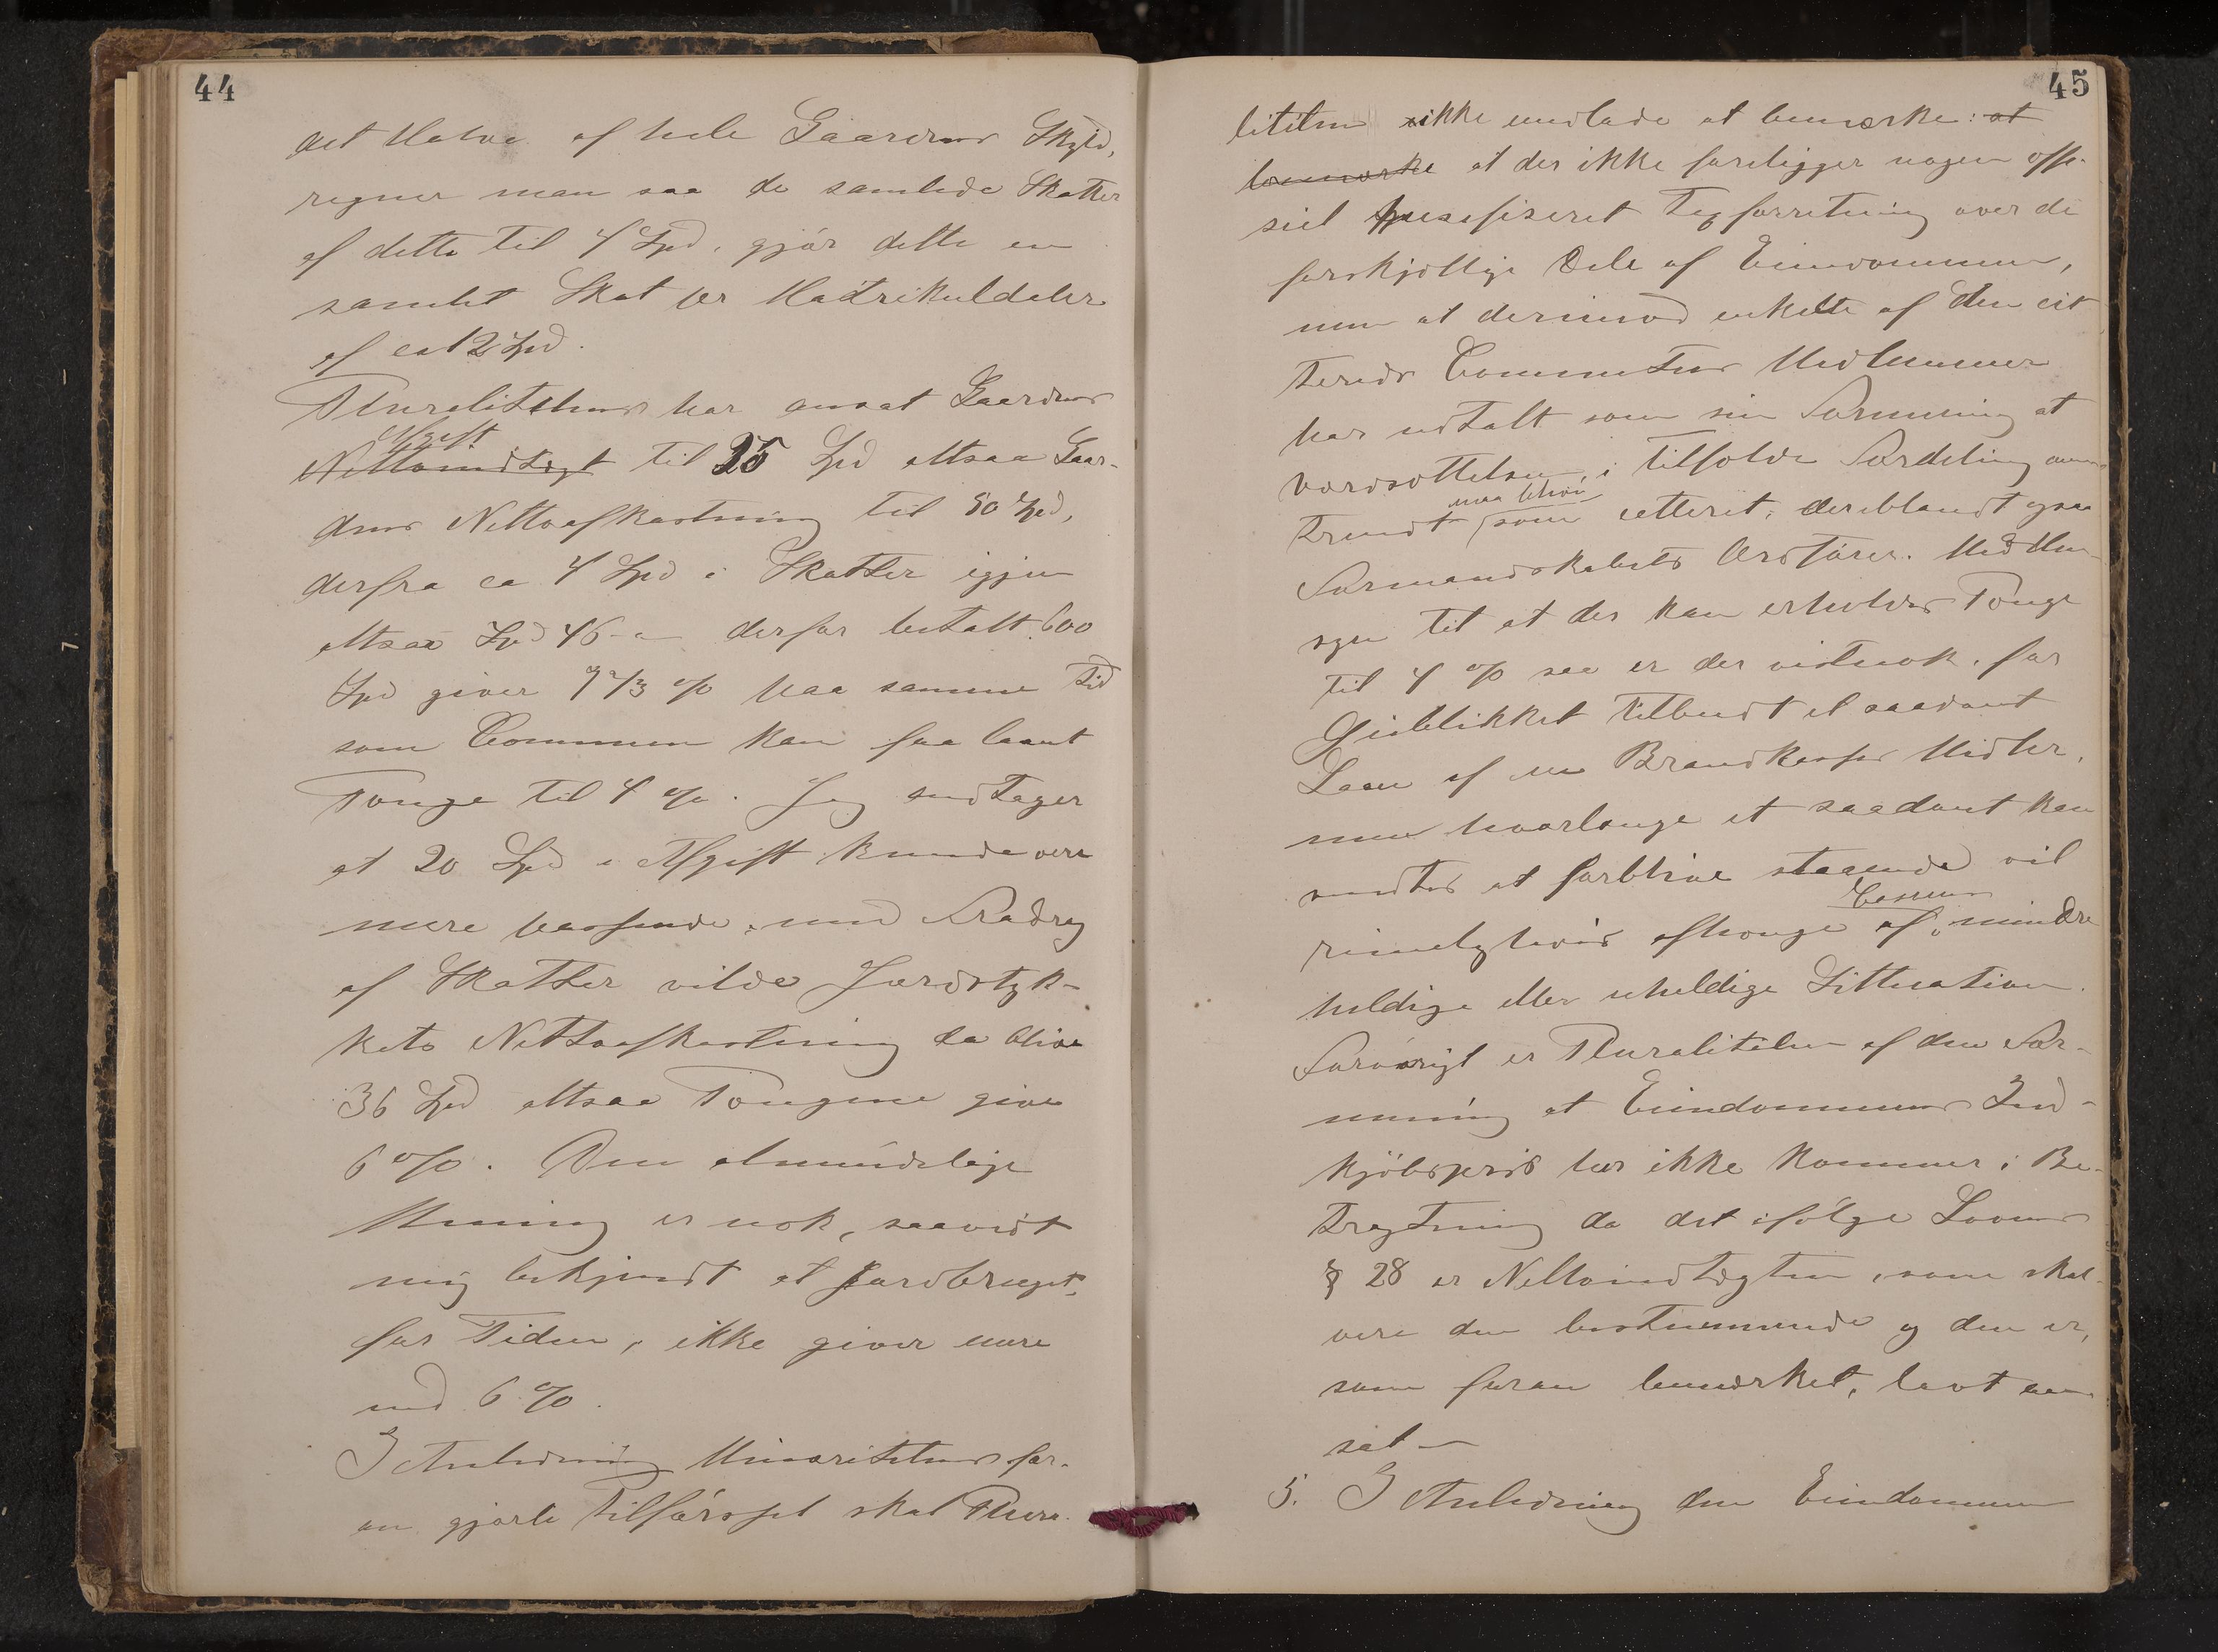 44
det Halve af hele Gaardens Skyld,
regner man saa de samlede Skatter
af dette til 4 Spd. gjør dette en
samlet Skat pr Matrikuldaler
af ca 12 Spd.
Pluralitetens har ansat Gaardens
Afgift
Nettoindtægt til 25 Spd altsaa Gaar-
dens Nettoafkastning til 50 Spd,
derfra ca 4 Spd i Skatter igjen
altsaa Spd 46 – derfor betalt 600
Spd giver 7 2/3 % paa samme Tid
som Communen kan faa laant
Penge til 4 %. Jeg antager
at 20 Spd i Afgift kunde være
mere passende, med Fradrag
af Skatter vilde Jordstyk-
kets Nettoafkastning da blive
36 Spd altsaa Pengene give
6 %. Den almindelige
Mening er nok, saavidt
mig bekjendt at Jordbruget,
for Tiden, ikke giver mere
end 6 %.
I Anledning Minoritetens for-
an gjorte Tilførsel skal Plura-
45
liteten ikke undlade at bemærke: at
bemærke at der ikke foreligger nogen offi-
siel spesifiseret Taxforretning over de
forskjellige Dele af Eiendommen,
men at derimod enkelte af den cit
terede Commetees Medlemmer
har udtalt som sin Formening at
værdsættelsen, i tilfælde Fordeling
maa blive
som vetteret, deriblandt ogsaa
Formandskabets Ordfører. Med Hen-
syn til at der kan erholdes Penge
til 4 % saa er der vistnok, for
Øieblikket tilbudt et saadant
Laan af Brandkasses Midler,
men hvorlænge et saadant kan
ventes at forblive staaende vil
Cassens
rimeligtvis afhænge af mindre
heldige eller uheldige Sittuation.
Forøvrigt er Pluraliteten af den For-
mening at Eiendommens Ind-
kjøbspris her ikke kommer i Be-
tragtning da det ifølge Lovens
§ 28 er Nettoindtægten, som skal
være den bestemmende og den er,
som foran bemærket, lavt an
sat –
5. I Anledning den Eiendommen